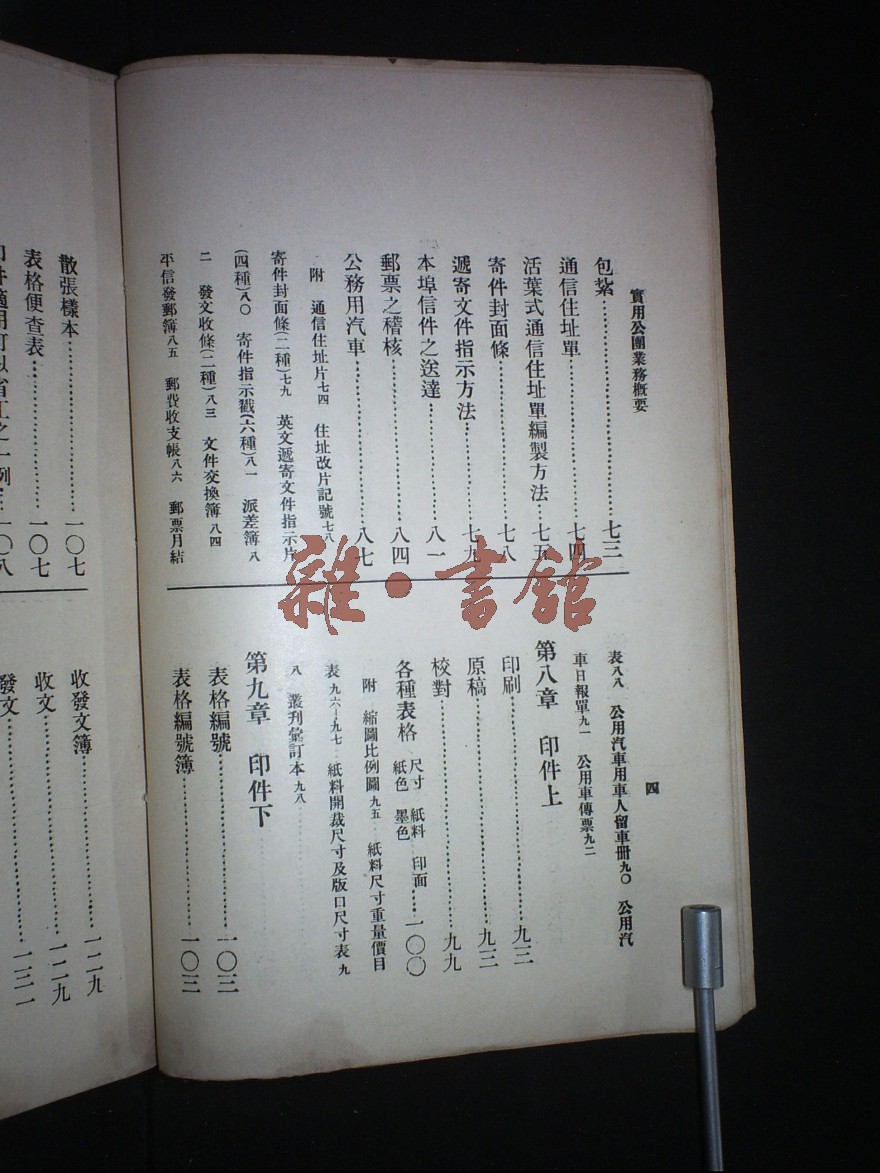 實用公團業務概要
四
包紮……七三
通信住址單……七四
活葉式通信住址單編製方法……七五
寄件封面條……七八
遞寄文件指示方法……七九
本埠信件之送達……八一
郵票之稽核……八四
公務用汽車……八七
附 通信住址片七四 住址改片記號七八
寄件封面條(二種)七九 英文遞寄文件指示片
(四種)八〇 寄件指示戳(六種)八一 派差簿八
二 發文收條(二種)八三 文件交換簿八四
平信發郵簿八五 郵費收支帳八六 郵票月結
表八八 公用汽車用車人留車冊九〇 公用汽
車日報單九一 公用車傳票九二
第八章 印件上
印刷……九三
原稿……九三
校對……九九
各種表格 尺寸 紙料 印面 紙色 墨色……一〇〇
附 縮圖比例圖九五 紙料尺寸重量價目
表九六—九七 紙料開裁尺寸及版口尺寸表九
八 叢刊彙訂本九八
第九章 印件下
表格編號……一〇三
表格編號簿……一〇三
散張樣本……一〇七
表格便查表……一〇七
印件適用可以省工之一例……一〇八
收發文簿……一二九
收文……一二九
發文……一三一
雜·書館